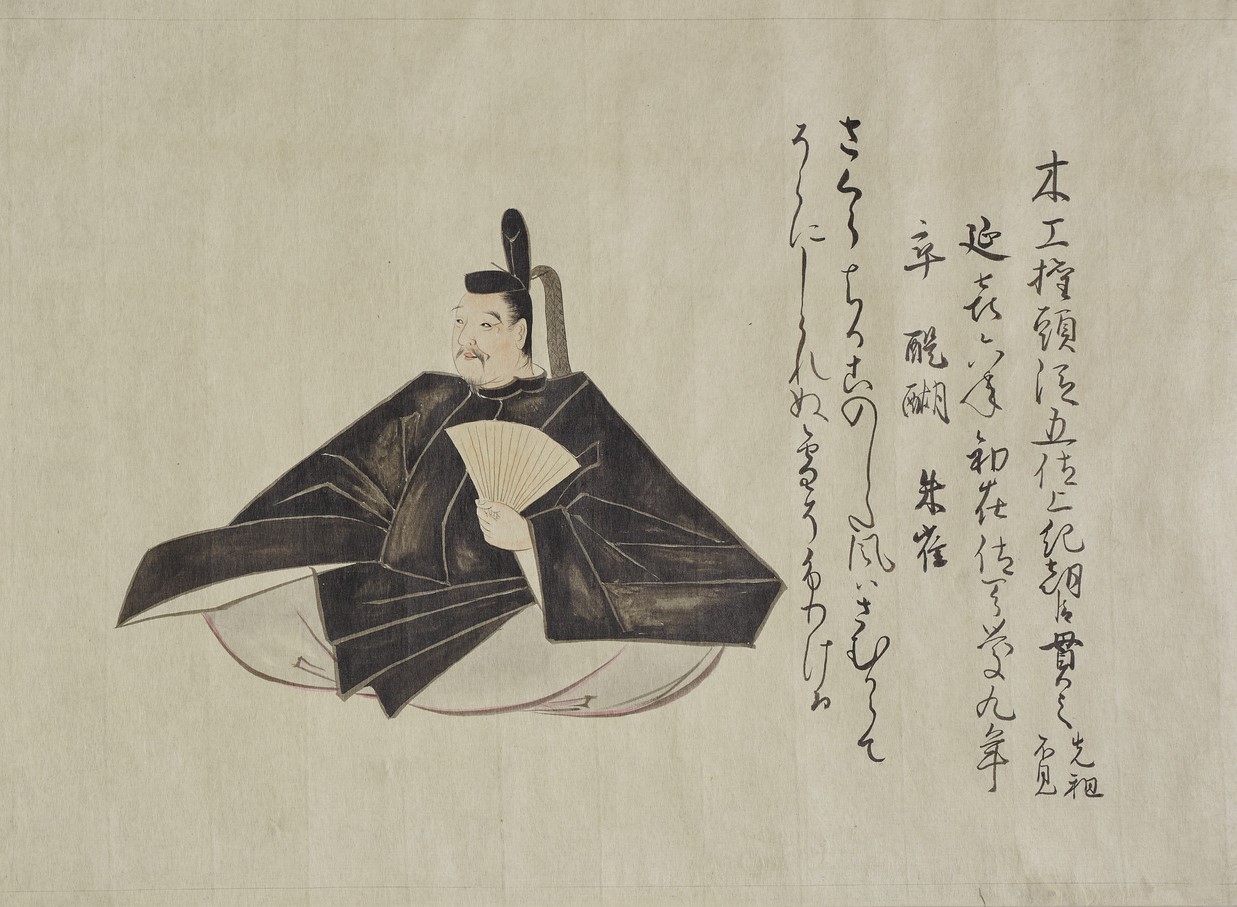 木工権頭従五位上紀朝臣貫之 先祖
不見
延喜六年初任位天慶九年
卒 醍醐 朱雀
さくらちるこのした風はさむからて
そらにしられぬ雪そふりける